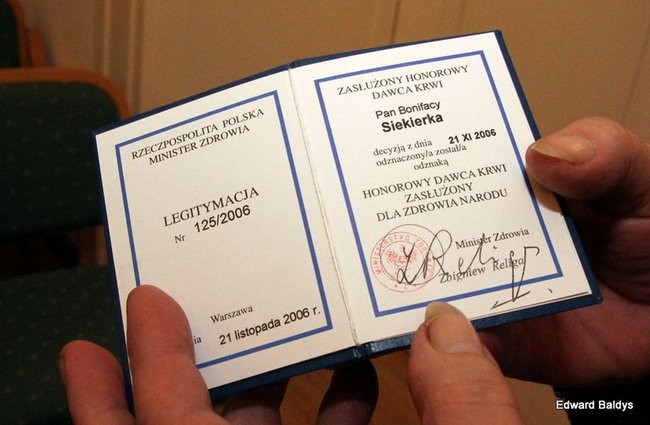 RZECZPOSPOLITA POLSKA
MINISTER ZDROWIA
LEGITYMACJA
Nr 125/2006
Warszawa
nia 21 listopada 2006 r.
ZASŁUŻONY HONOROWY
DAWCA KRWI
Pan Bonifacy
Siekierka
decyzją z dnia 21 XI 2006
odznaczony/a został/a
odznaką
HONOROWY DAWCA KRWI
ZASŁUŻONY
DLA ZDROWIA NARODU
Minister Zdrowia
Zbigniew Religa
Edward Baldys